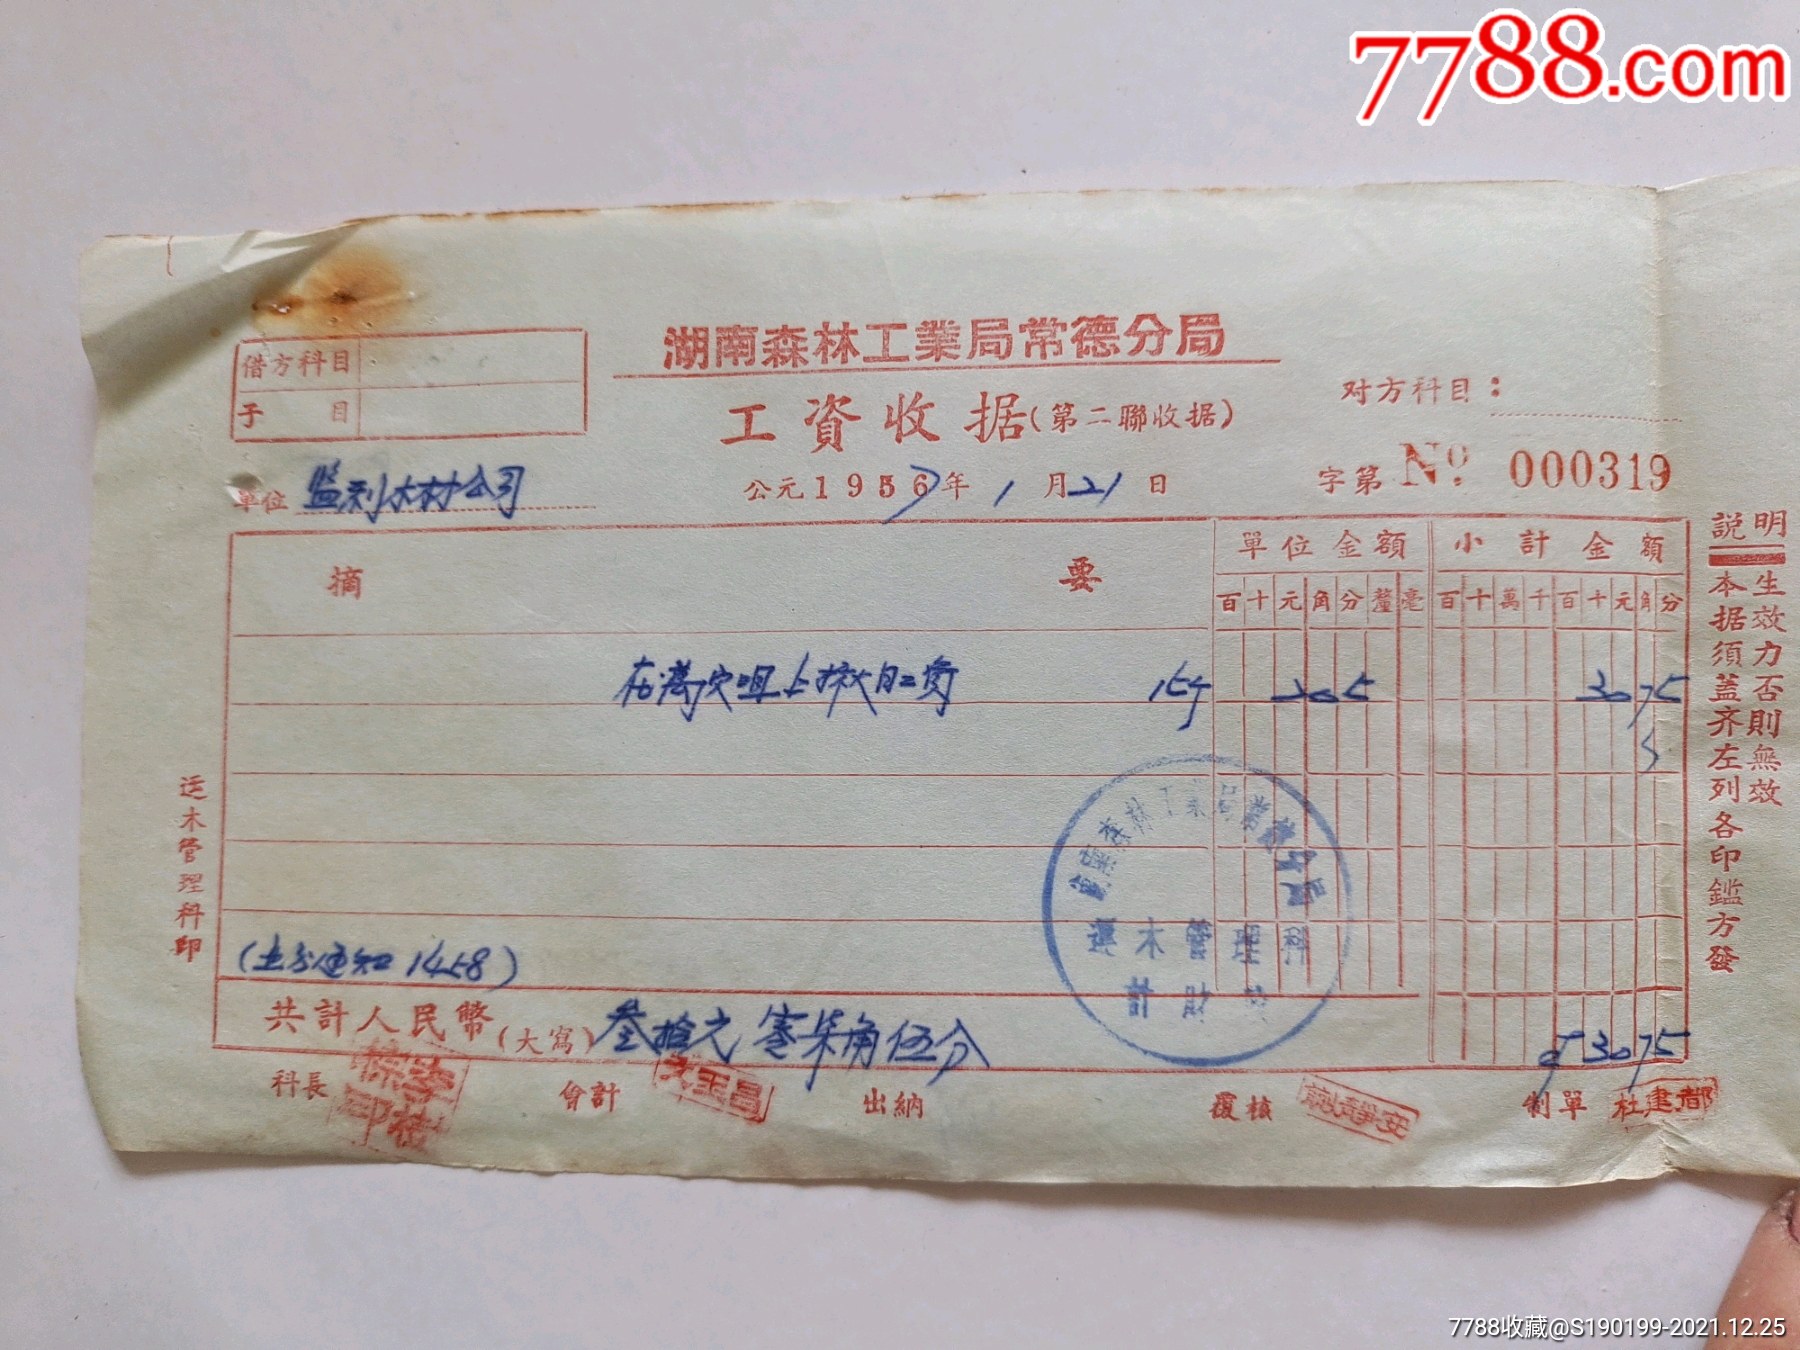 7788.com
湖南森林工業局常德分局
借方科目
子 目
工資收据(第二聯收据)
对方科目:
單位 监利木材公司
公元1957年1月21日
字第 № 000319
摘 要
單位金額
小計金額
百十元角分釐毫
百十萬千百十元角分
15个 205 3075
1458)
共計人民幣(大寫) 叁拾元零柒角伍分 3075
科長
會計
出納
覆核
制單 杜建都
运木管理科印
説明
本据須蓋齐左列各印鑑方發
生效力否則無效
湖南森林工業局常德分局
運木管理科
7788收藏@S190199-2021.12.25